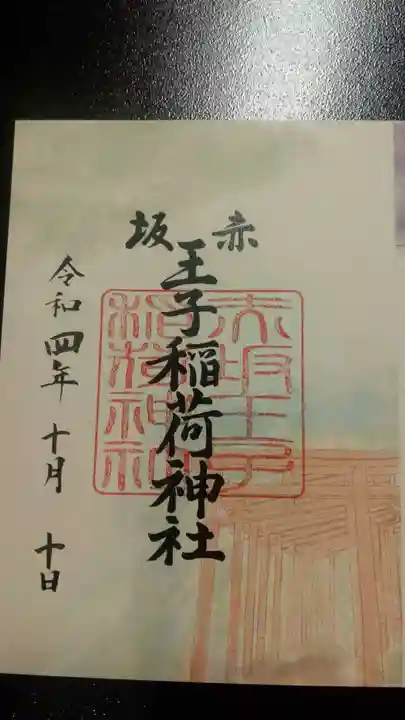 赤坂
王子稲荷神社
赤坂王子
稲荷神社
令和四年十月十日